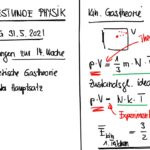 STUNDE PHYSIK
G 31.5.2021
ungen zur 14. Woche
etische Gastheorie
Hauptsatz
Kin. Gastheorie
V
p·V = 1/3 m·N·
Zustandsgl. ideal
p·V = N·k·T
Experiment
E kin = 3/2
1 Teilchen